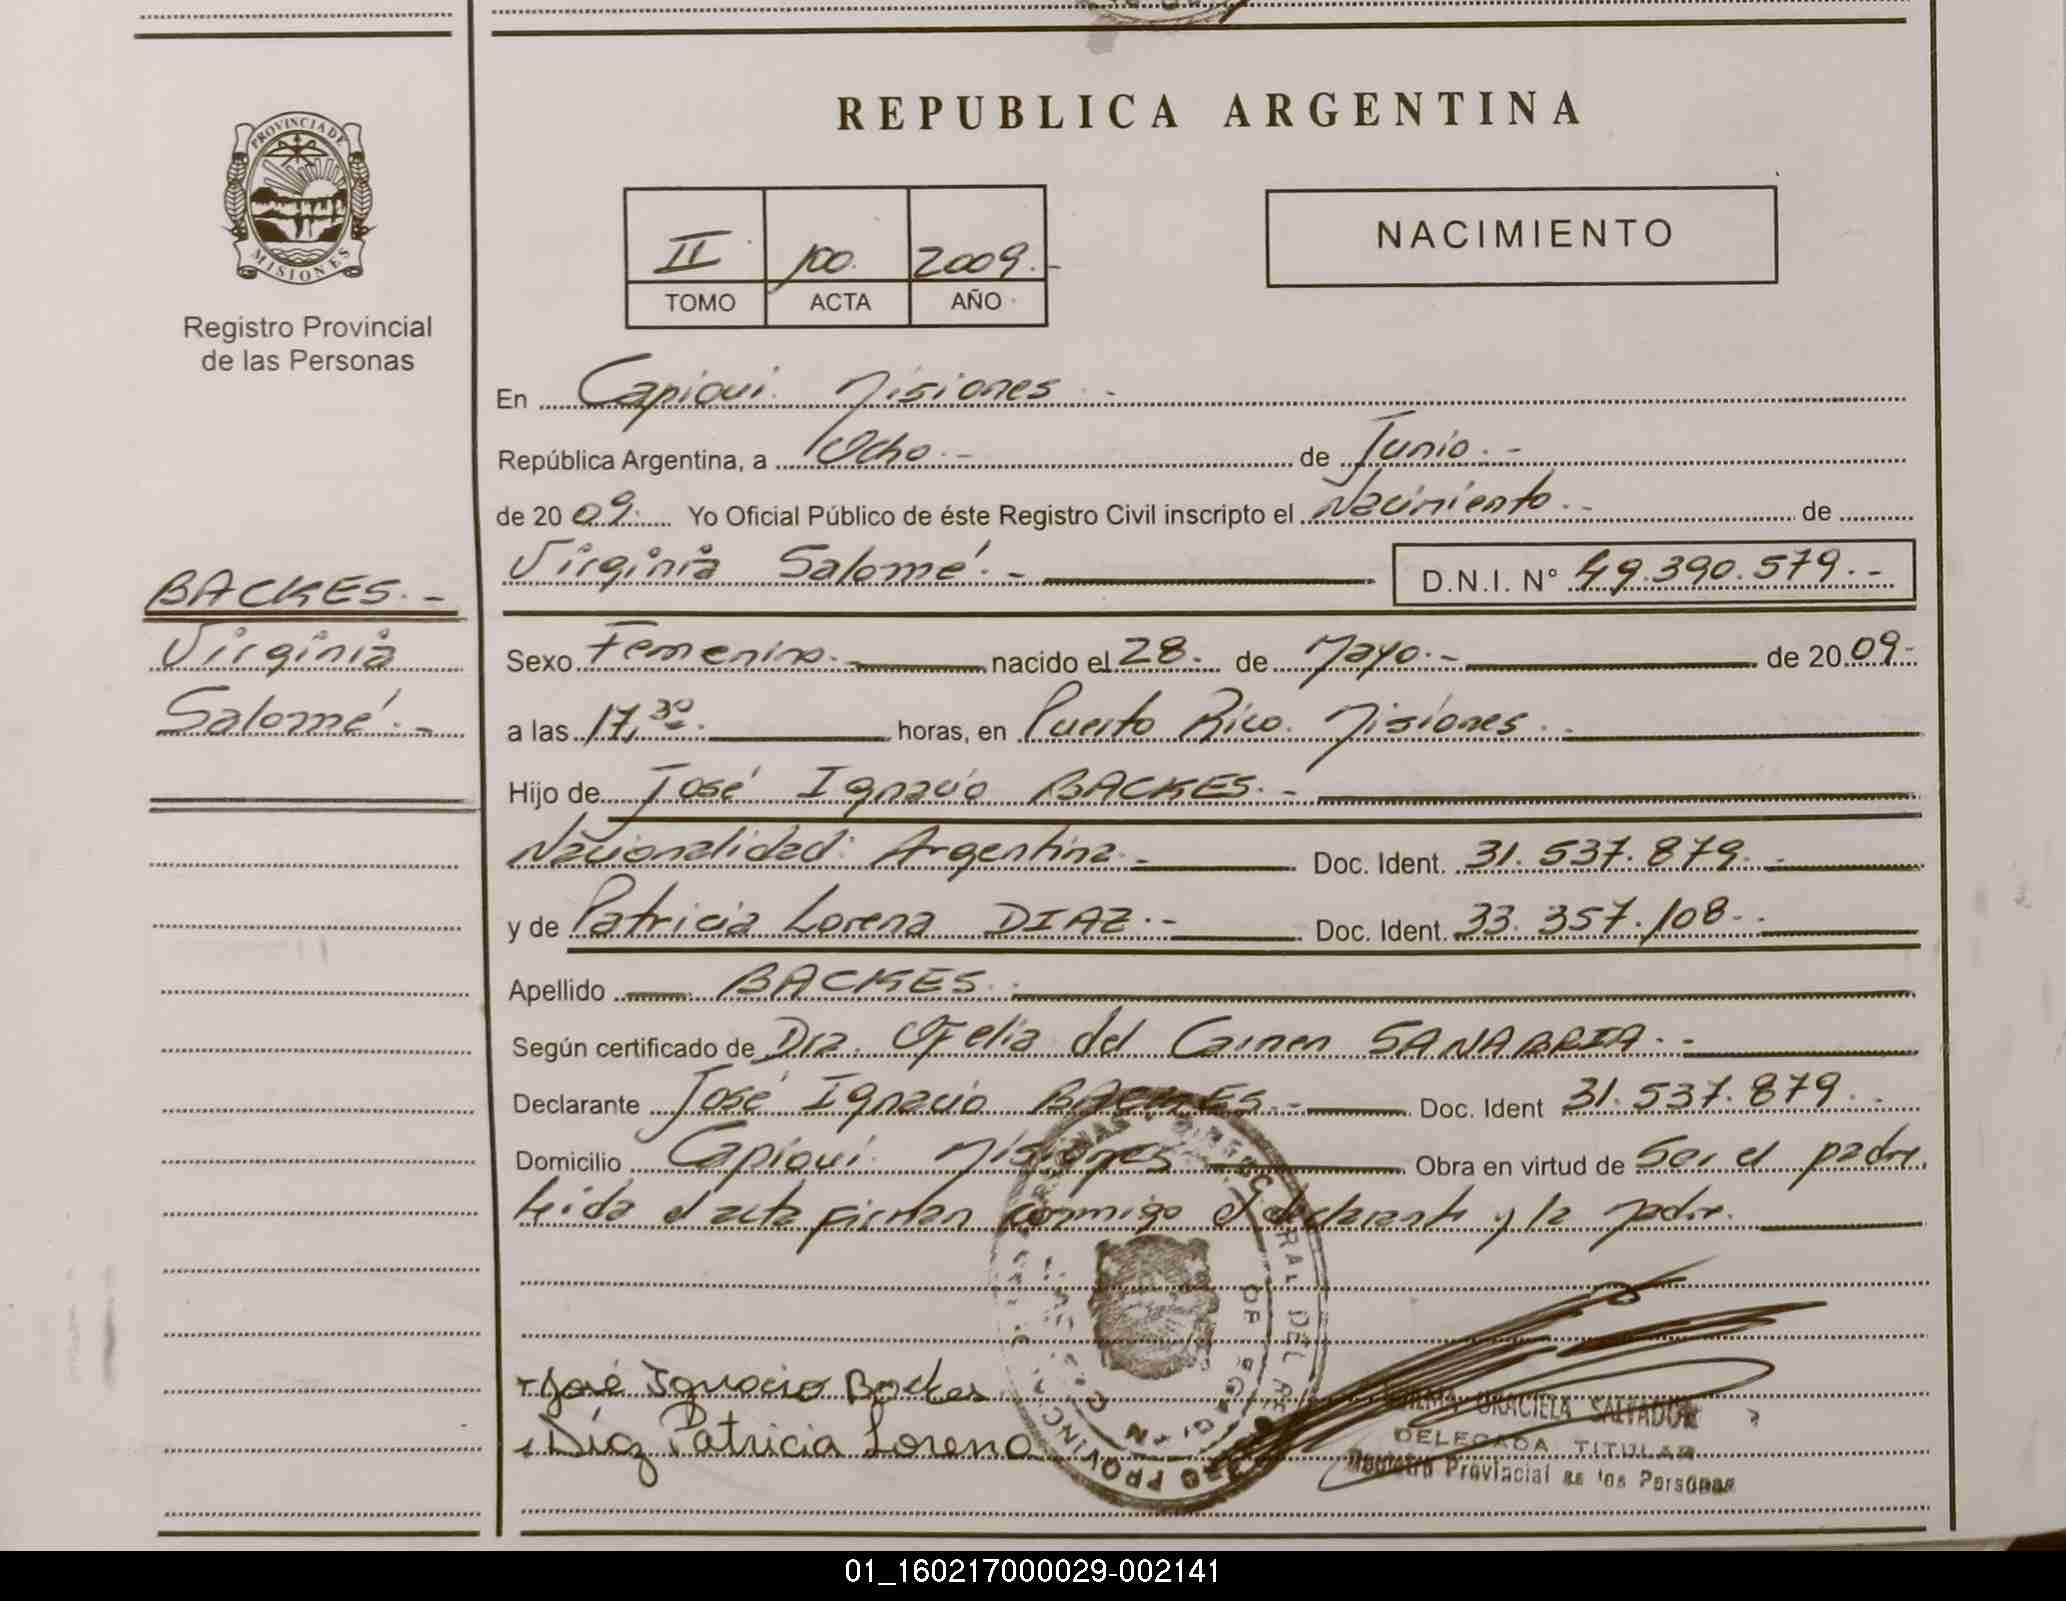 REPUBLICA ARGENTINA
PROVINCIA DE MISIONES
Registro Provincial
de las Personas
II 100 2009.-
TOMO ACTA AÑO
NACIMIENTO
En Capioví. Misiones.-
República Argentina, a Ocho.- de Junio.-
de 2009. Yo Oficial Público de éste Registro Civil inscripto el Nacimiento.- de
Virginia Salomé.- D.N.I. N° 49.390.579.-
BACKES.-
Virginia
Salomé.-
Sexo Femenino.- nacido el 28. de Mayo.- de 2009.-
a las 17,30. horas, en Puerto Rico. Misiones.
Hijo de José Ignacio BACKES.-
Nacionalidad: Argentina.- Doc. Ident. 31.537.879.-
y de Patricia Lorena DIAZ.- Doc. Ident. 33.357.108.-
Apellido BACKES.
Según certificado de Dra. Ofelia del Carmen SANABRIA.-
Declarante José Ignacio BACKES.- Doc. Ident 31.537.879.-
Domicilio Capioví. Misiones Obra en virtud de Ser el padre
leida el acta firman conmigo el declarante y la madre.
José Ignacio Backes
Díaz Patricia Lorena
GRACIELA SALVADOR
DELEGADA TITULAR
Registro Provincial de las Personas
01_160217000029-002141